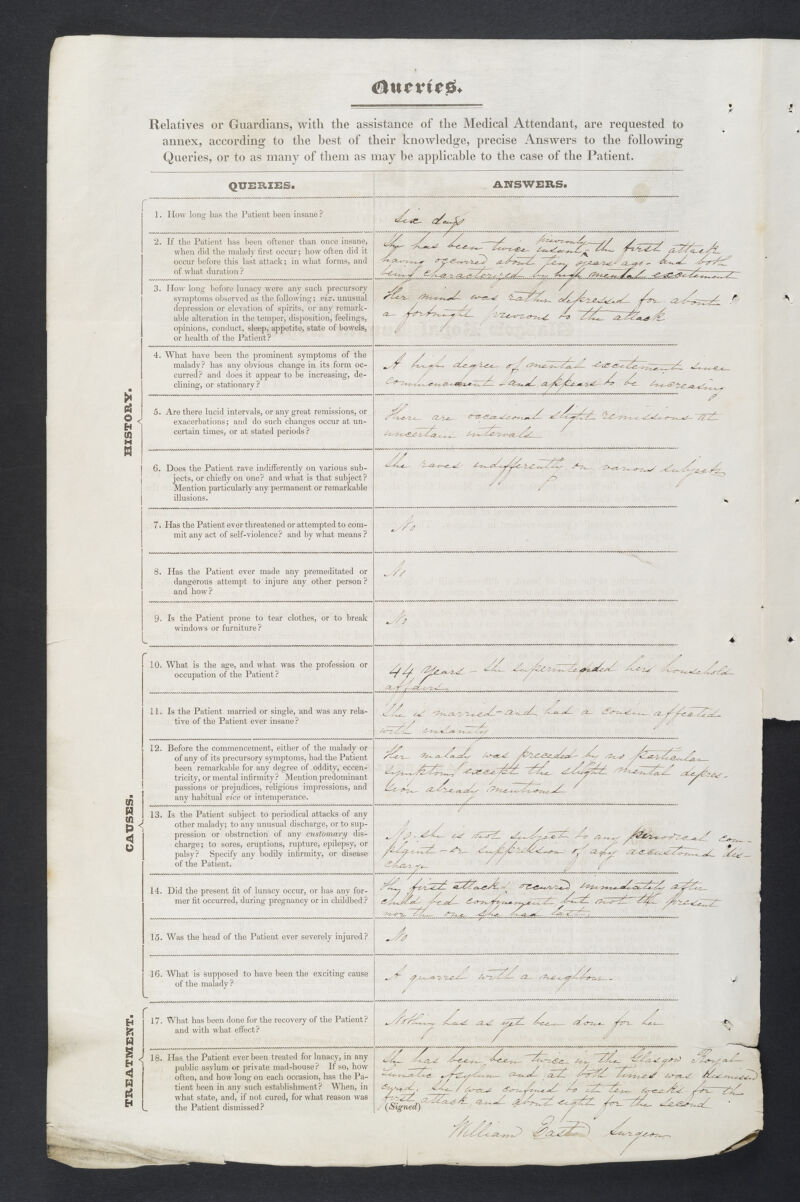 Queries.
Relatives or Guardians, with the assistance of the Medical Attendant, are requested to
annex, according to the best of their knowledge, precise Answers to the following
Queries, or to as many of them as may be applicable to the case of the Patient.
QUERIES.
ANSWERS.
HISTORY.
1. How long has the Patient been insane?
Six days
2. If the Patient has been oftener than once insane,
when did the malady first occur; how often did it
occur before this last attack; in what forms, and
of what duration?
previously
She has been twice insane, the first attack
having occurred about ten years ago - and both
being characterized by high mental excitement
3. How long before lunacy were any such precursory
symptoms observed as the following; viz. unusual
depression or elevation of spirits, or any remark-
able alteration in the temper, disposition, feelings,
opinions, conduct, sleep, appetite, state of bowels,
or health of the Patient?
Her mind was rather depressed for about
a fortnight previous to the attack
4. What have been the prominent symptoms of the
malady? has any obvious change in its form oc-
curred? and does it appear to be increasing, de-
clining, or stationary?
A high degree of mental excitement since
commencement - and appears to be increasing
5. Are there lucid intervals, or any great remissions, or
exacerbations; and do such changes occur at un-
certain times, or at stated periods?
There are occasional slight remissions at
uncertain intervals
6. Does the Patient rave indifferently on various sub-
jects, or chiefly on one? and what is that subject?
Mention particularly any permanent or remarkable
illusions.
She raves indifferently on various subjects
7. Has the Patient ever threatened or attempted to com-
mit any act of self-violence? and by what means?
No
8. Has the Patient ever made any premeditated or
dangerous attempt to injure any other person?
and how?
No
9. Is the Patient prone to tear clothes, or to break
windows or furniture?
No
CAUSES.
10. What is the age, and what was the profession or
occupation of the Patient?
44 years - She superintended hers household
affairs
11. Is the Patient married or single, and was any rela-
tive of the Patient ever insane?
She is married - and had a cousin affected
with insanity
12. Before the commencement, either of the malady or
of any of its precursory symptoms, had the Patient
been remarkable for any degree of oddity, eccen-
tricity, or mental infirmity? Mention predominant
passions or prejudices, religious impressions, and
any habitual vice or intemperance.
Her malady was preceded by no particular
symptom, except the slight mental depres-
sion already mentioned
13. Is the Patient subject to periodical attacks of any
other malady; to any unusual discharge, or to sup-
pression or obstruction of any customary dis-
charge; to sores, eruptions, rupture, epilepsy, or
palsy? Specify any bodily infirmity, or disease
of the Patient.
No, she is not subject to any periodical com-
plaint - or suppression of any accustomed dis-
charge
14. Did the present fit of lunacy occur, or has any for-
mer fit occurred, during pregnancy or in childbed?
The first attack, occurred immediately after
child bed confinement but not the present
nor the one she had last.
15. Was the head of the Patient ever severely injured?
No
16. What is supposed to have been the exciting cause
of the malady?
A quarrel with a neighbour.
TREATMENT.
17. What has been done for the recovery of the Patient?
and with what effect?
Nothing has as yet been done for her
18. Has the Patient ever been treated for lunacy, in any
public asylum or private mad-house? If so, how
often, and how long on each occasion, has the Pa-
tient been in any such establishment? When, in
what state, and, if not cured, for what reason was
the Patient dismissed?
She has been, been twice in the Glasgow Royal
Lunatic Asylum and at both times was dismissed
cured. She was confined to it ten weeks for the
first attack, and about eight for the second
(Signed)
William Easton Surgeon